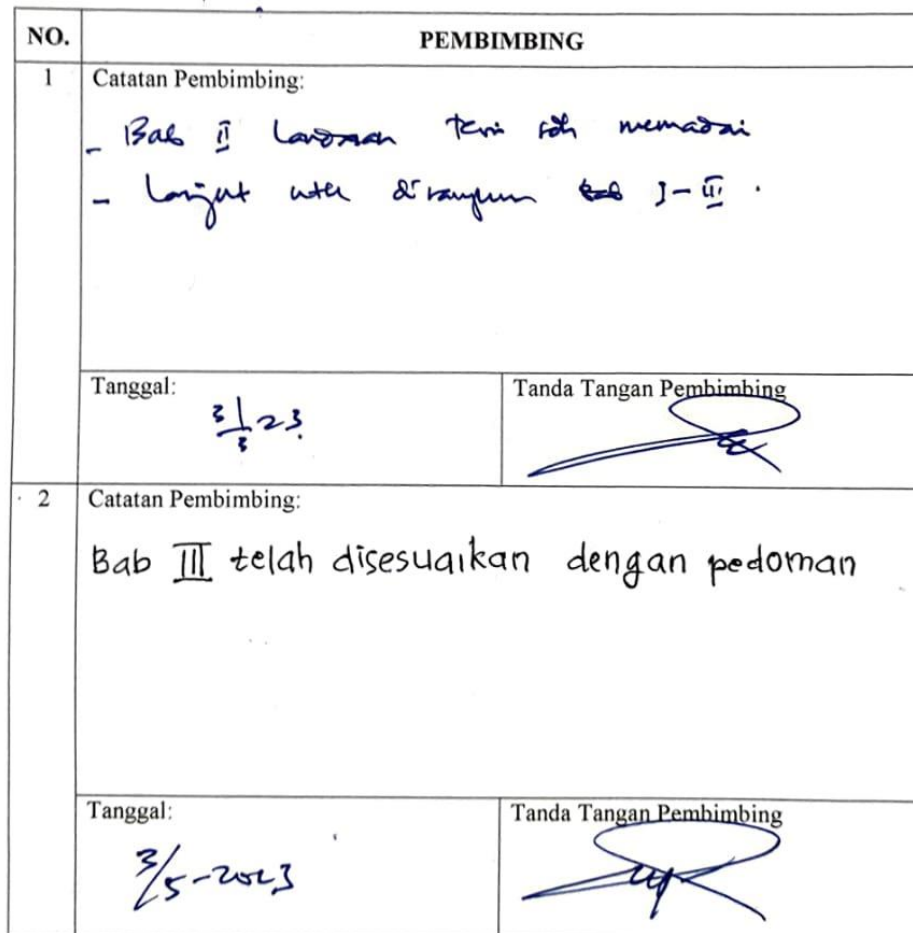 NO. PEMBIMBING
1 Catatan Pembimbing:
- Bab II Landasan teori sdh memadai
- Lanjut utk dirangkum I-III.
Tanggal: Tanda Tangan Pembimbing
3/3 23
2 Catatan Pembimbing:
Bab III telah disesuaikan dengan pedoman
Tanggal: Tanda Tangan Pembimbing
3/5-2023